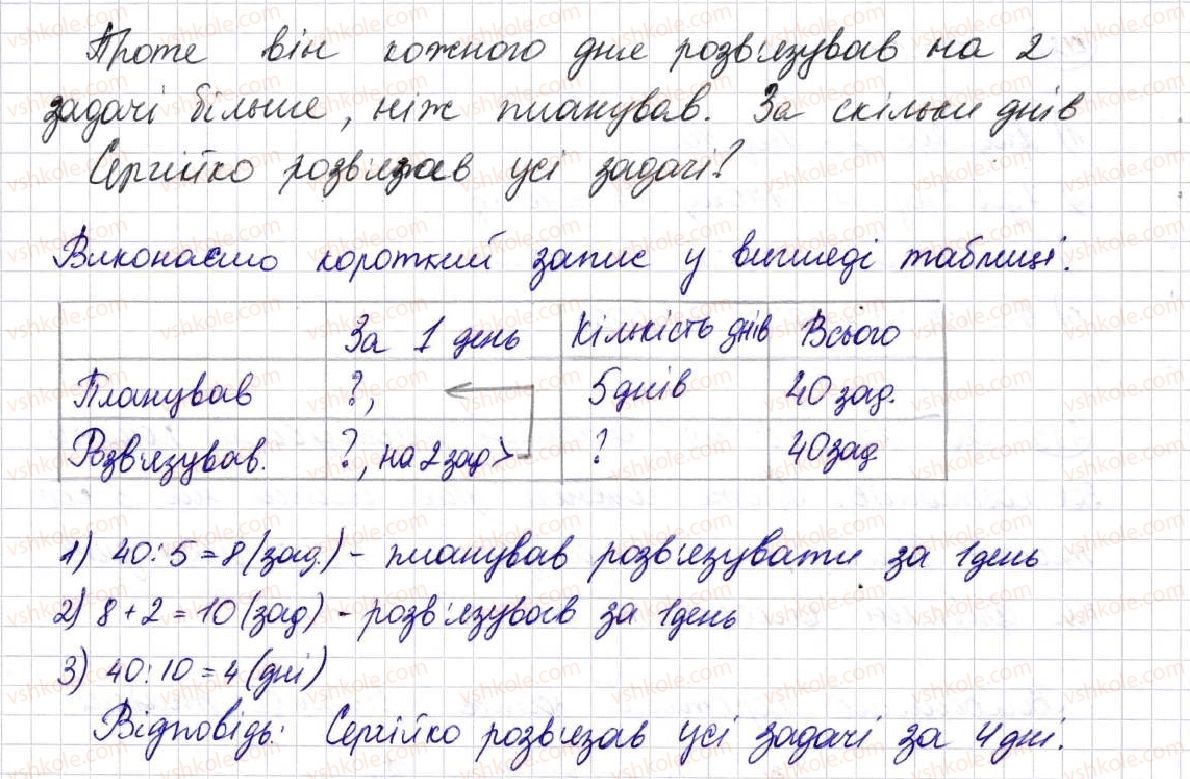 Проте він кожного дня розв'язував на 2
задачі більше, ніж планував. За скільки днів
Сергійко розв'язав усі задачі?
Виконаємо короткий запис у вигляді таблиці.
За 1 день Кількість днів Всього
Планував ?, 5 днів 40 зад.
Розв'язував. ?, на 2 зад > ? 40 зад
1) 40:5=8 (зад.) - планував розв'язувати за 1 день
2) 8+2=10 (зад) - розв'язував за 1 день
3) 40:10=4 (дні)
Відповідь: Сергійко розв'язав усі задачі за 4 дні.